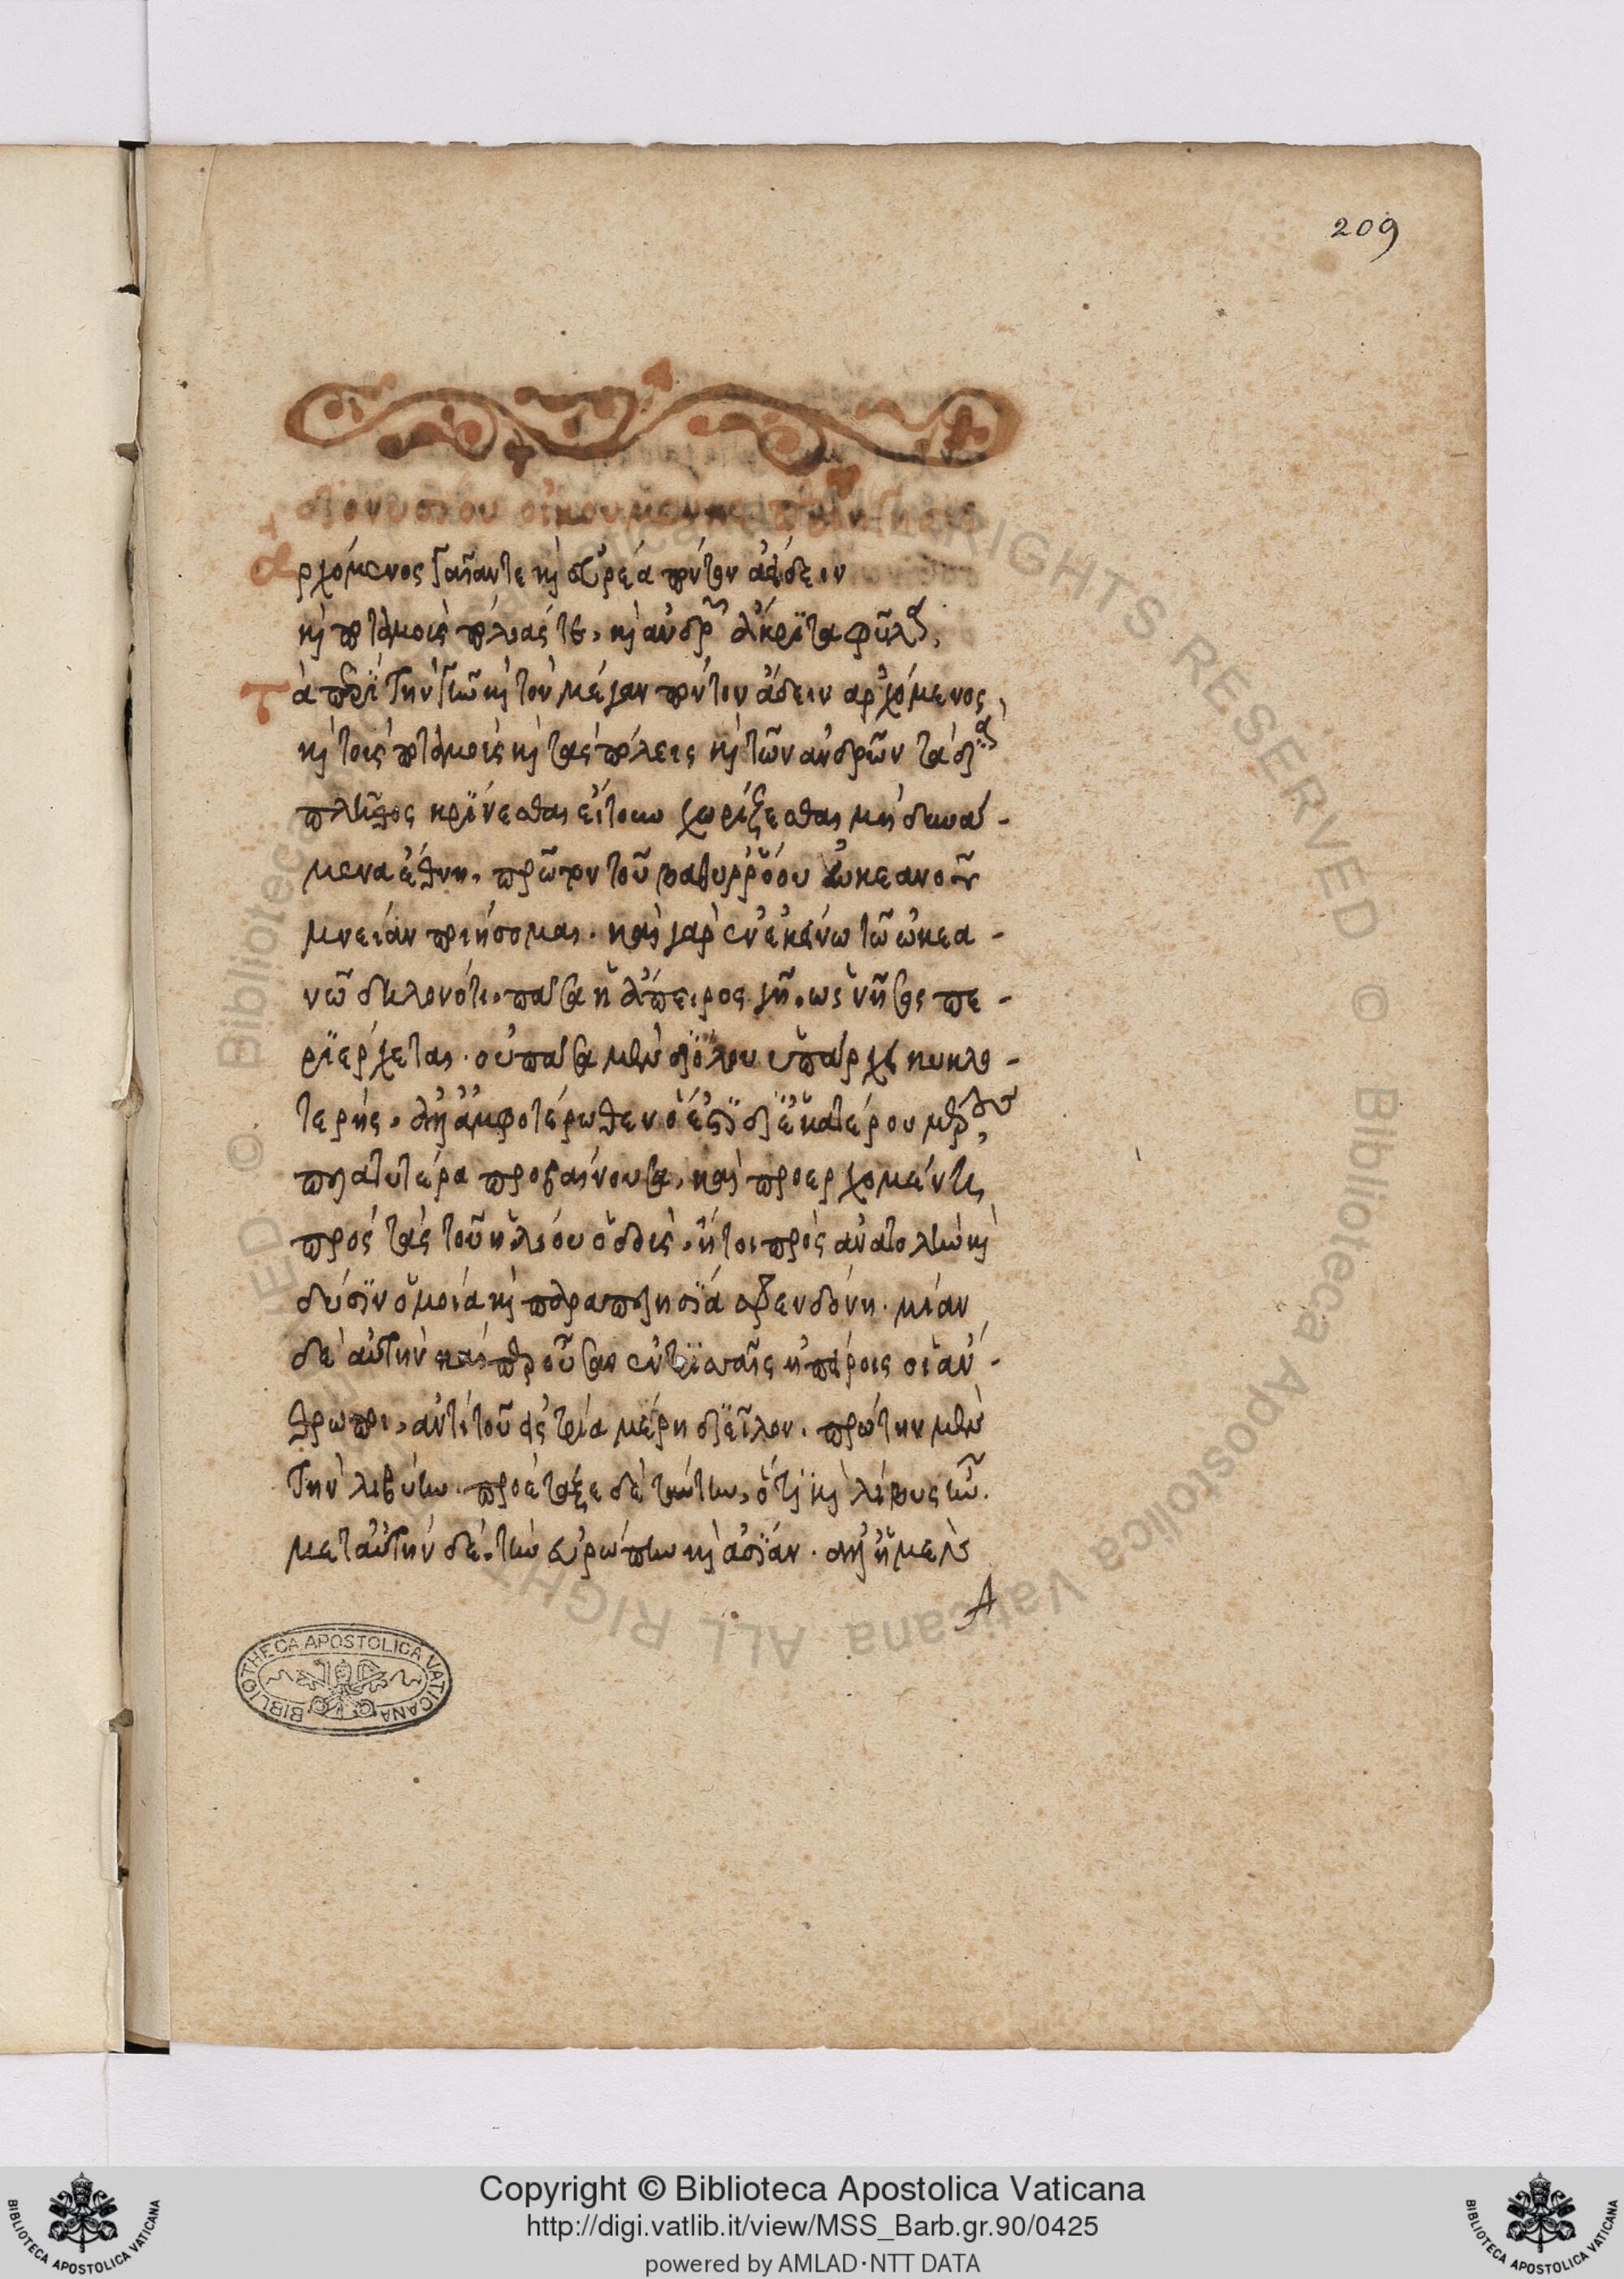 209
διονυσίου οἰκουμένης περιήγησις
Ἀρχόμενος γαῖαν τε καὶ εὐρέα πόντον ἀείδειν
καὶ ποταμοὺς πόλιάς τε, καὶ ἀνδρῶν ἄκριτα φῦλα,
Τὰ περὶ τὴν γῆν καὶ τὸν μέγαν πόντον ἄδειν ἀρχόμενος,
καὶ τοὺς ποταμοὺς καὶ τὰς πόλεις καὶ τῶν ἀνδρῶν τὰ διὰ
πλῆθος κρίνεσθαι εἴτουν χωρίζεσθαι μὴ δυνά-
μενα ἔθνη, πρῶτον τοῦ βαθυρρόου ὠκεανοῦ
μνείαν ποιήσομαι. καὶ γὰρ ἐν ἐκείνω τῶ ὠκεα-
νῶ δηλονότι, πᾶσα ἡ ἄπειρος γῆ, ὡς νῆσος πε-
ριέρχεται. οὐ πᾶσα μὲν διόλου ὑπάρχει κυκλο-
τερής, ἀλλὰ ἀμφοτέρωθεν ὅ ἐστι δι ἑκατέρου μέρους
πλατυτέρα προβαίνουσα, καὶ προερχομένη
πρὸς τὰς τοῦ ἡλίου ὁδοὺς, ἤτοι πρὸς ἀνατολὴν καὶ
δύσιν ὁμοία καὶ παραπλησία σφενδόνη. μίαν
δὲ αὐτὴν καίπερ οὖσαν οἱ ἄν-
θρωποι, ἀντὶ τοῦ εἰς τρία μέρη διεῖλον. πρώτην μὲν
τὴν λιβύην. προέταξε δὲ ταύτην, ὅτι καὶ λίβυς ἦν.
μετ αὐτὴν δὲ, τὴν εὐρώπην καὶ ἀσίαν.
A
BIBLIOTHECA APOSTOLICA VATICANA
© Biblioteca Apostolica Vaticana ALL RIGHTS RESERVED
Copyright © Biblioteca Apostolica Vaticana
http://digi.vatlib.it/view/MSS_Barb.gr.90/0425
powered by AMLAD·NTT DATA
BIBLIOTECA APOSTOLICA VATICANA
BIBLIOTECA APOSTOLICA VATICANA